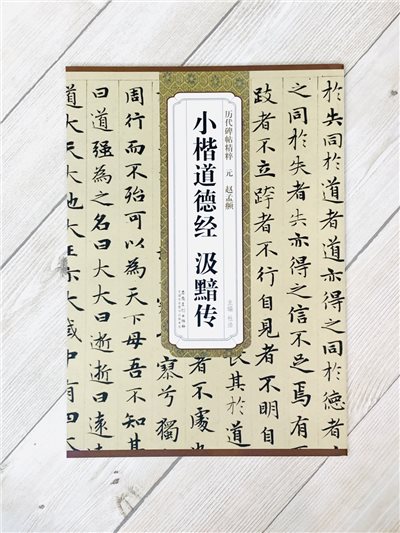 历代碑帖精粹 元 赵孟頫
小楷道德经 汲黯传
主编 杜浩
安徽美术出版社
於失同於道者道亦得之同於德者
之同於失者失亦得之信不足焉有
跂者不立跨者不行自見者不明自
長其於道
者不處也
寥兮獨
周行而不殆可以為天下母吾不知其
曰道强為之名曰大大曰逝逝曰遠遠
道大天大地大王亦大域中有四